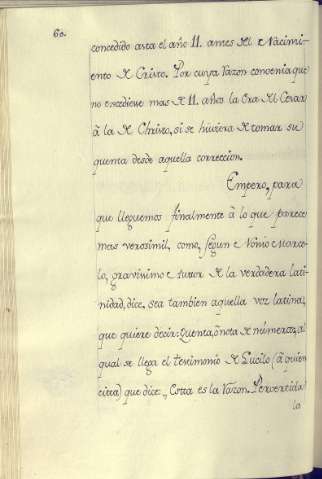 60.
concedido asta el año 11. antes del Nacimi-
ento de Cristo. Por cuya razon convenia que
no excediese mas de 11. años la Era del Cesar
â la de Christo, si se huviera de tomar su
quenta desde aquella correccion.
Empero, para
que lleguemos finalmente â lo que parece
mas verosimil, como, segun Nonio Marce-
lo, gravisimo autor de la verdadera lati-
nidad, dice, sea tambien aquella voz latina,
que quiere decir: Quenta, ô nota de numeros, al
qual se llega el testimonio de Lucilo (â quien
citta) que dice: Cotta es la razon. Percercida
la